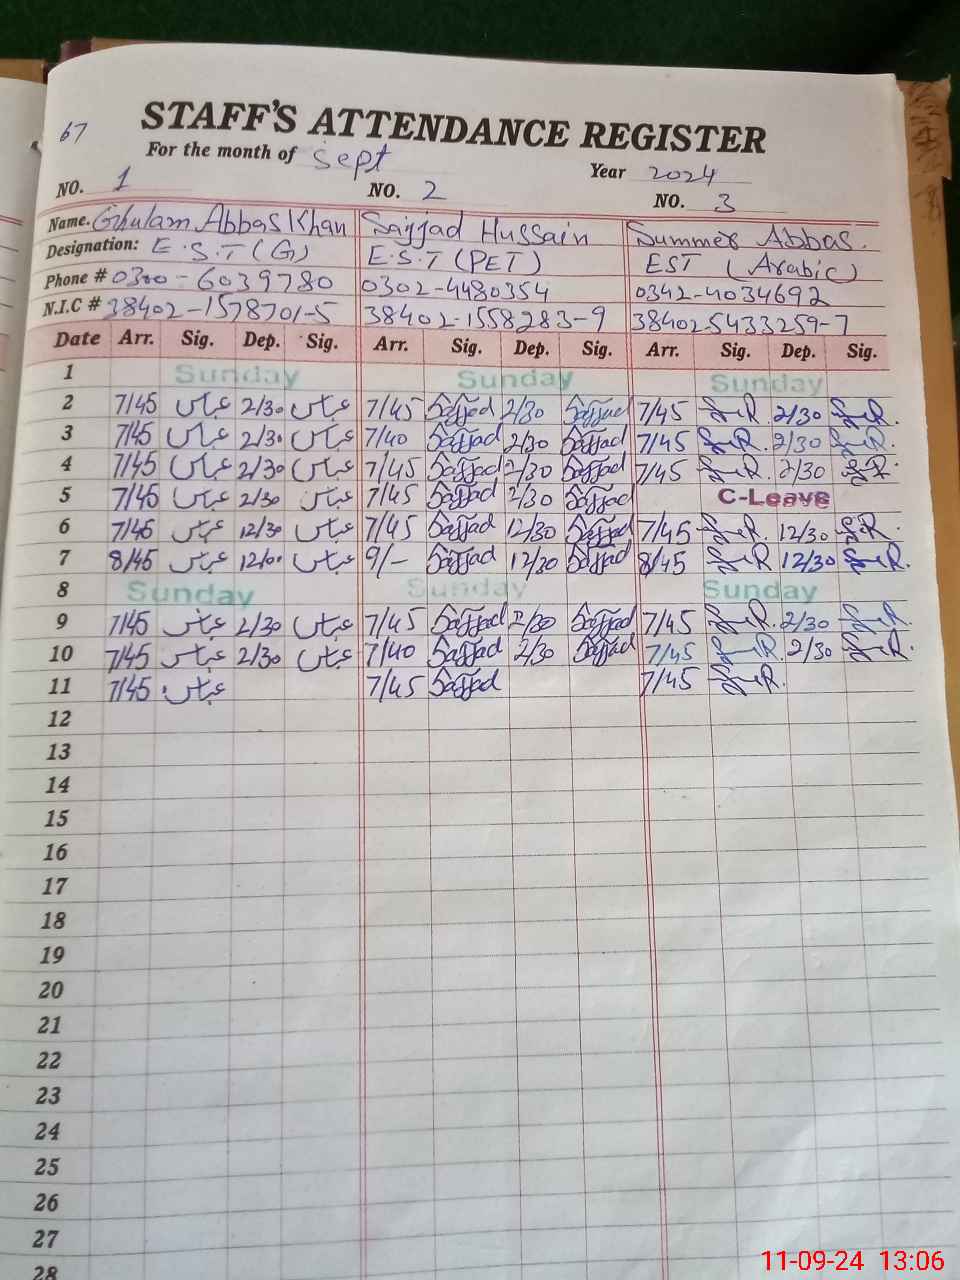 67
STAFF'S ATTENDANCE REGISTER
For the month of Sept Year 2024
NO. 1 NO. 2 NO. 3
Name. Ghulam Abbas Khan Sajjad Hussain Summer Abbas.
Designation: E.S.T (G) E.S.T (PET) EST (Arabic)
Phone # 0300-6039780 0302-4480354 0342-4034692
N.I.C # 38402-1578701-5 38402-1558283-9 38402-5433259-7
Date Arr. Sig. Dep. Sig. Arr. Sig. Dep. Sig. Arr. Sig. Dep. Sig.
1 Sunday Sunday Sunday
2 7/45 عباس 2/30 عباس 7/45 Sajjad 2/30 Sajjad 7/45 2/30
3 7/45 عباس 2/30 عباس 7/40 Sajjad 2/30 Sajjad 7/45 2/30
4 7/45 عباس 2/30 عباس 7/45 Sajjad 2/30 Sajjad 7/45 2/30
5 7/45 عباس 2/30 عباس 7/45 Sajjad 2/30 Sajjad C-Leave
6 7/45 عباس 12/30 عباس 7/45 Sajjad 12/30 Sajjad 7/45 12/30
7 8/45 عباس 12/00 عباس 9/- Sajjad 12/30 Sajjad 8/45 12/30
8 Sunday Sunday Sunday
9 7/45 عباس 2/30 عباس 7/45 Sajjad 2/30 Sajjad 7/45 2/30
10 7/45 عباس 2/30 عباس 7/40 Sajjad 2/30 Sajjad 7/45 2/30
11 7/45 عباس 7/45 Sajjad 7/45
12
13
14
15
16
17
18
19
20
21
22
23
24
25
26
27
28
11-09-24 13:06